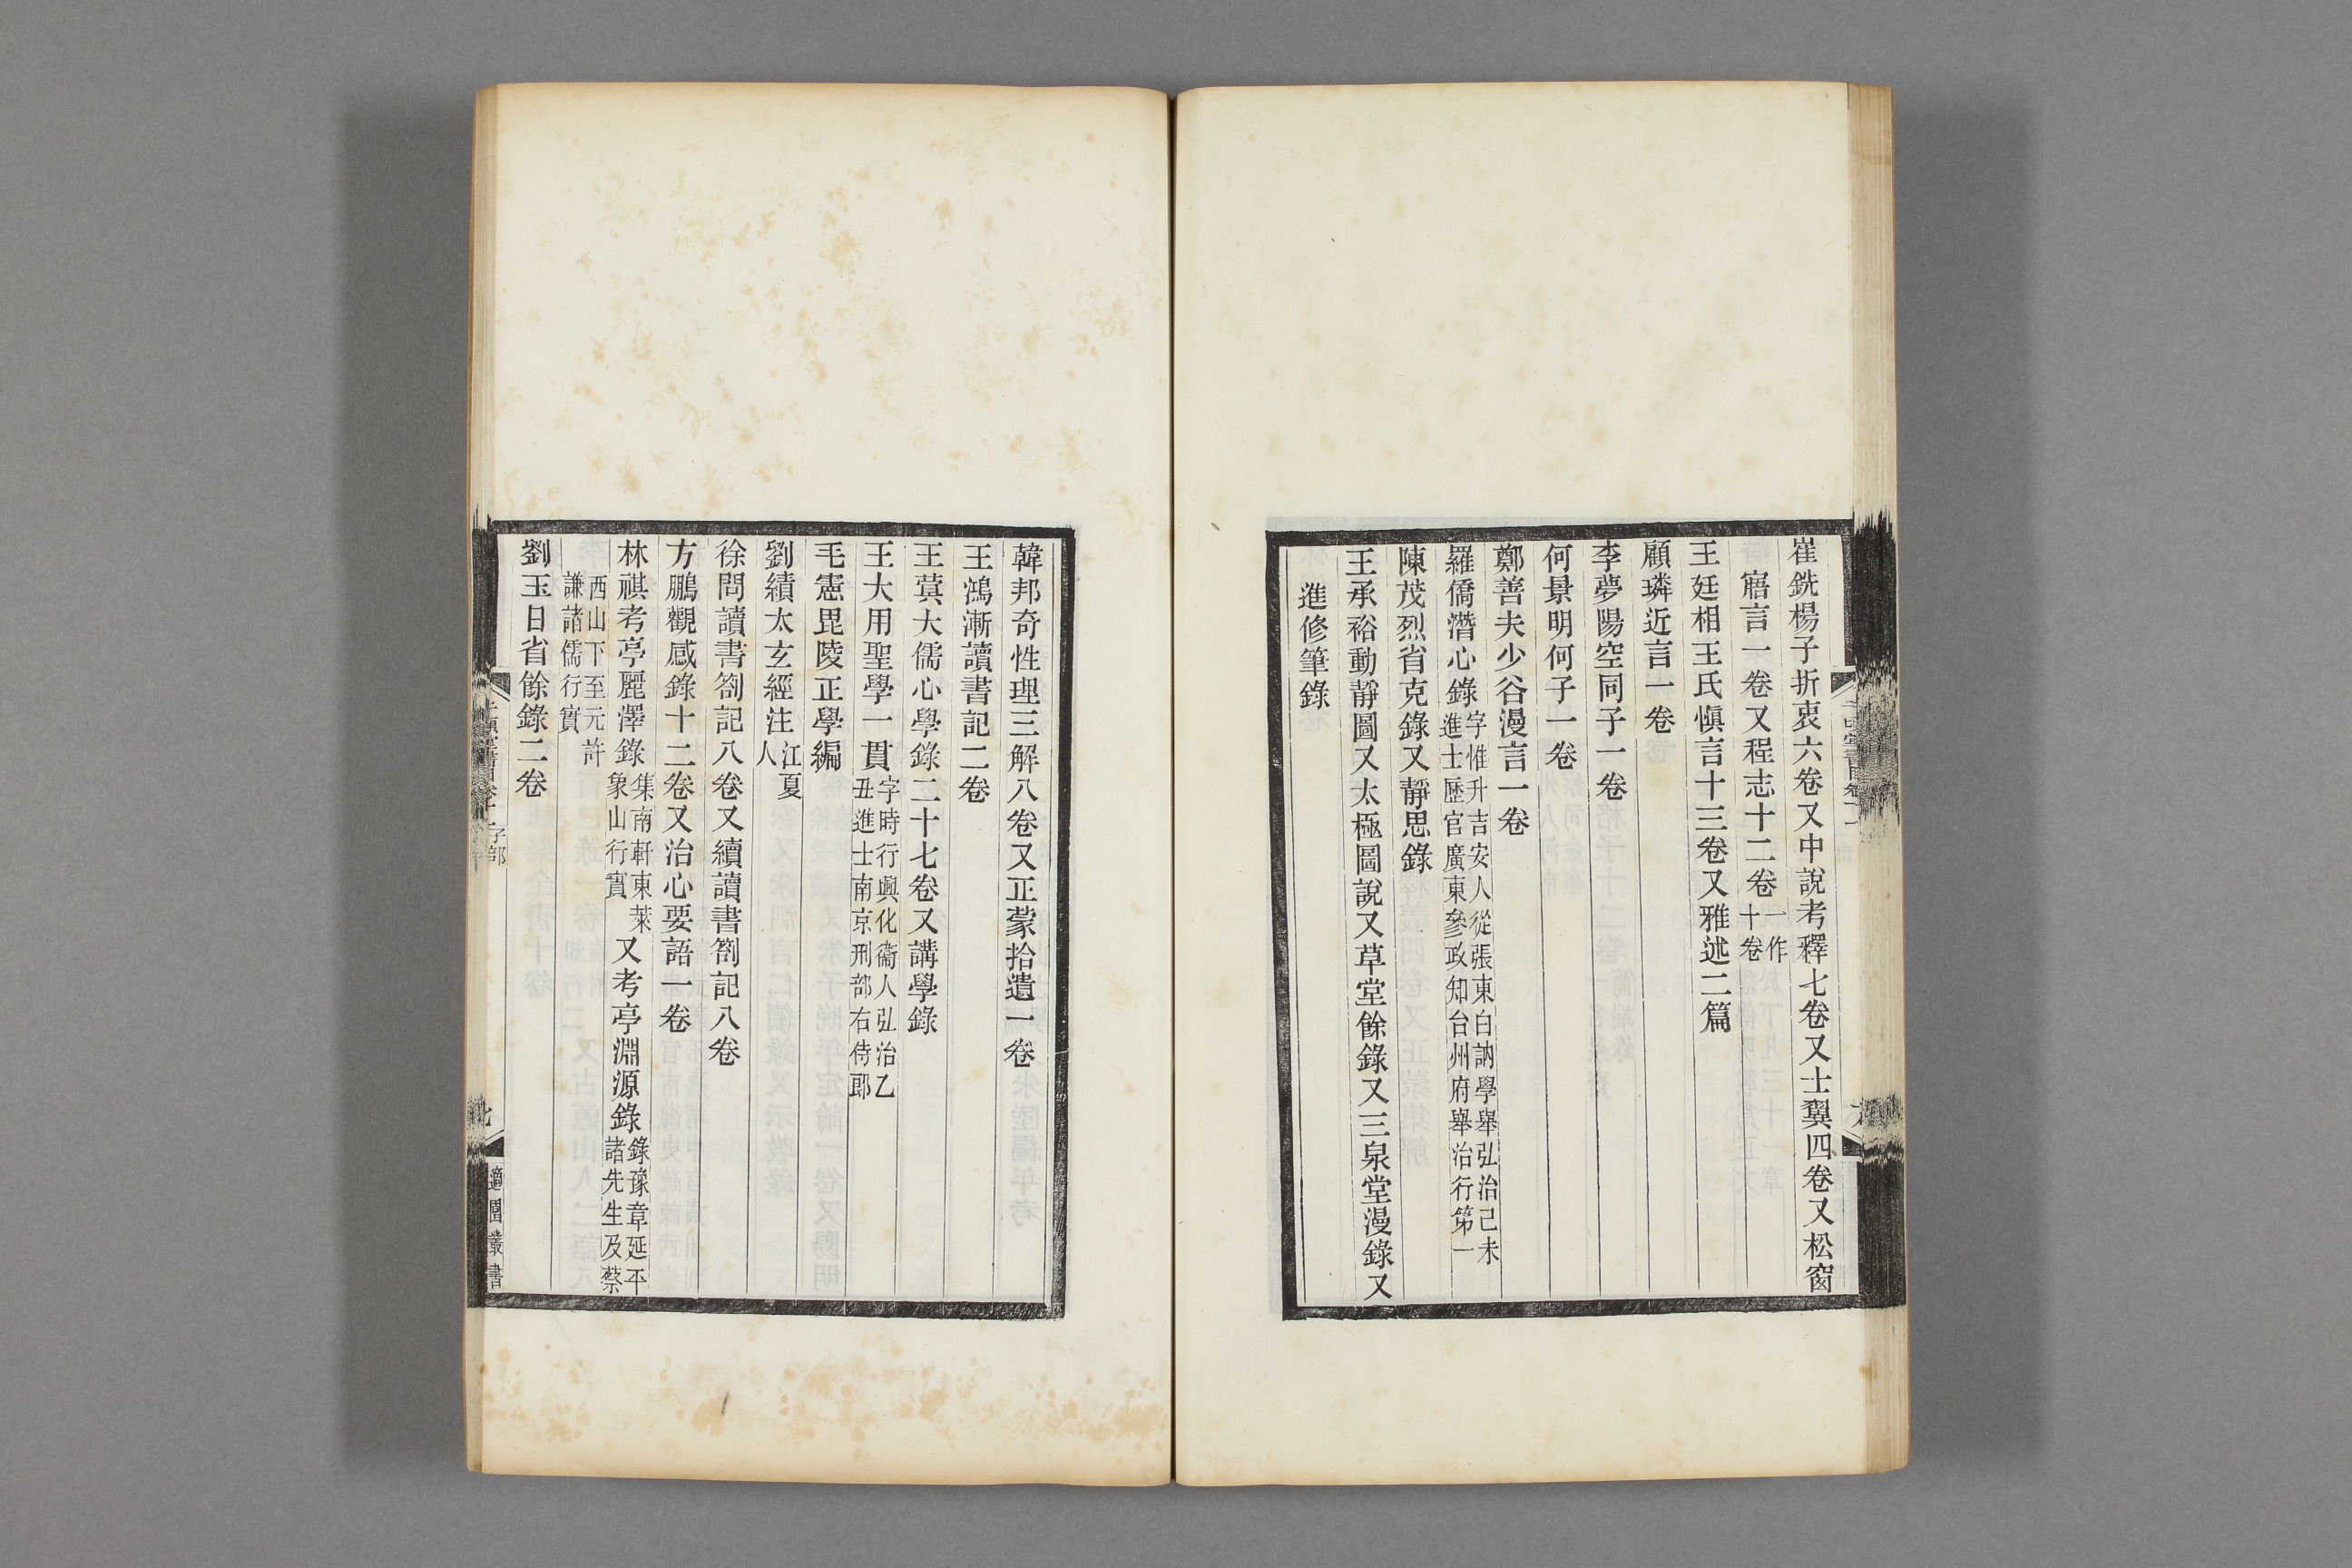 崔銑楊子折衷六卷又中說考釋七卷又士翼四卷又松窗
寤言一卷又程志十二卷一作十卷
王廷相王氏愼言十三卷又雅述二篇
顧璘近言一卷
李夢陽空同子一卷
何景明何子一卷
鄭善夫少谷漫言一卷
羅僑潛心錄字惟升吉安人從張東白訥學舉弘治己未進士歷官廣東參政知台州府舉治行第一
陳茂烈省克錄又靜思錄
王承裕動靜圖又太極圖說又草堂餘錄又三泉堂漫錄又
進修筆錄
韓邦奇性理三解八卷又正蒙拾遺一卷
王鴻漸讀書記二卷
王蓂大儒心學錄二十七卷又講學錄
王大用聖學一貫字時行興化衞人弘治乙丑進士南京刑部右侍郎
毛憲毘陵正學編
劉績太玄經注江夏人
徐問讀書劄記八卷又續讀書劄記八卷
方鵬觀感錄十二卷又治心要語一卷
林祺考亭麗澤錄集南軒東萊象山行實又考亭淵源錄錄豫章延平諸先生及蔡
西山下至元許謙諸儒行實
劉玉日省餘錄二卷
千頃堂書目卷十一 子部
適園叢書